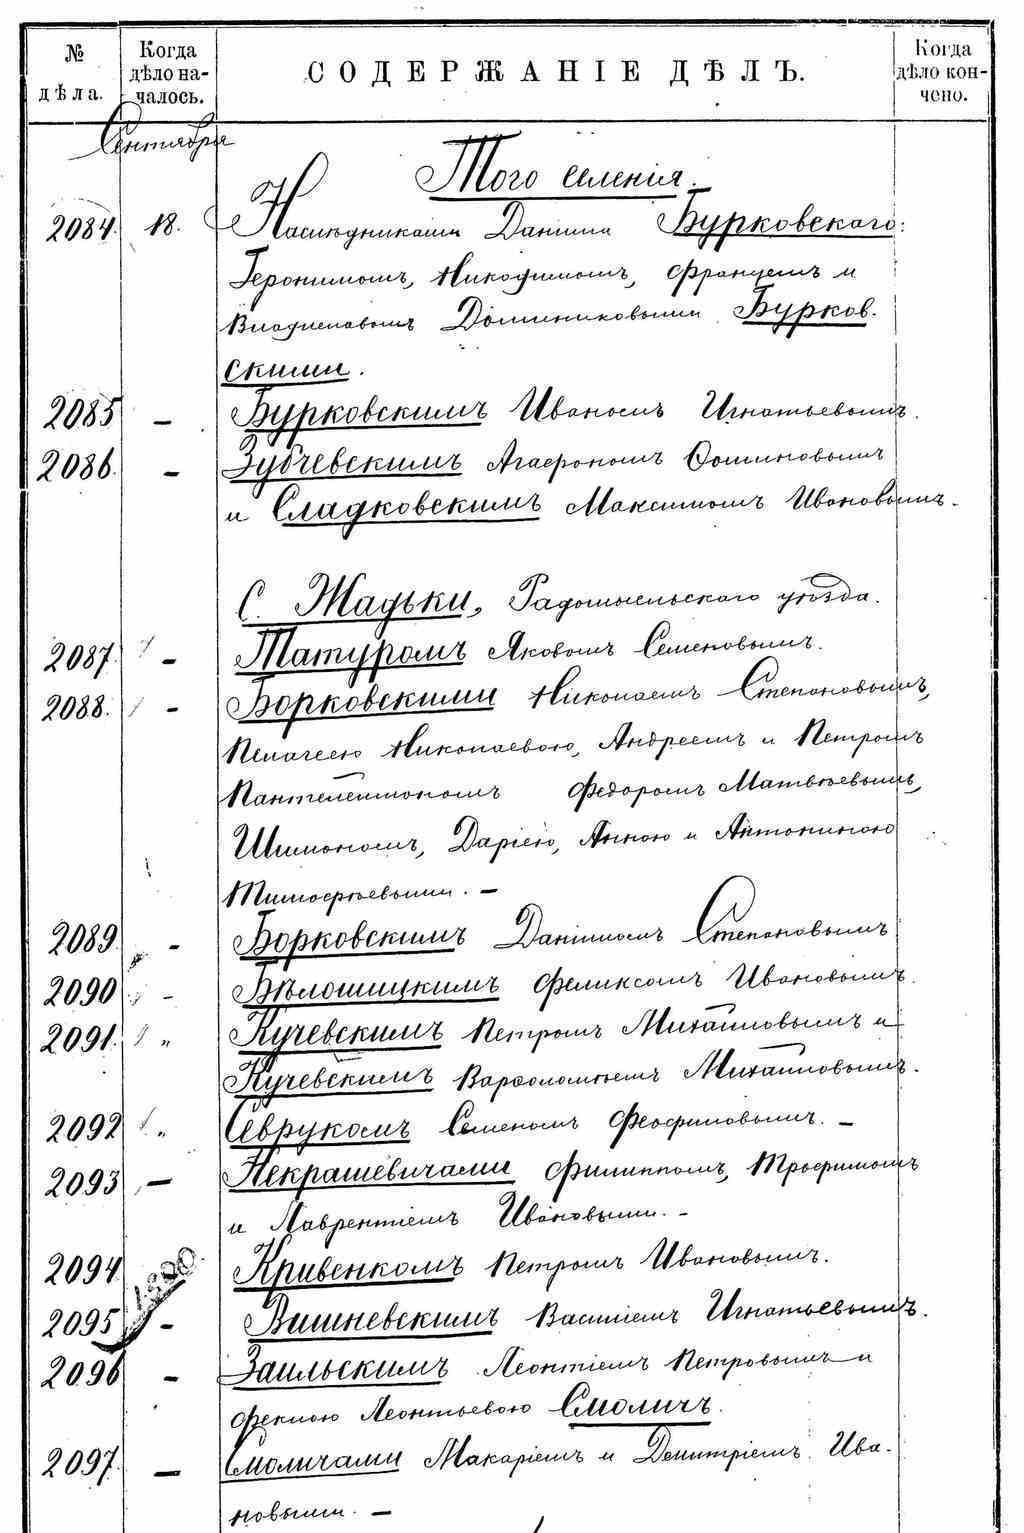 № дѣла.
Когда дѣло началось.
СОДЕРЖАНІЕ ДѢЛЪ.
Когда дѣло кончено.
Сентября
Того селенія.
2084. 18. Наслѣдниками Даніила Бурковскаго:
Іеронимомъ, Никодимомъ, Францемъ и
Владиславомъ Доминиковыми Бурков-
скими.
2085 — Бурковскимъ Иваномъ Игнатьевымъ.
2086. — Зубчевскимъ Агафономъ Фоминовымъ
и Сладковскимъ Максимомъ Ивановымъ.
С. Жадьки, Радомысльскаго уѣзда.
2087. — Татуромъ Яковомъ Семеновымъ.
2088. — Борковскими Николаемъ Степановымъ,
Пелагеею Николаевою, Андреемъ и Петромъ
Пантелеимономъ Федоромъ Матвѣевымъ,
Шимономъ, Даріею, Анною и Антониною
Тимофѣевыми. —
2089. — Борковскимъ Даніиломъ Степановымъ
2090 — Бѣлошицкимъ Феликсомъ Ивановымъ.
2091. „ Кучевскимъ Петромъ Михайловымъ и
Кучевскимъ Варфоломѣемъ Михайловымъ.
2092 „ Севрукомъ Семеномъ Феофиловымъ. —
2093 — Некрашевичами Филиппомъ, Трофимомъ
и Лаврентіемъ Ивановыми. —
2094 Кривенкомъ Петромъ Ивановымъ.
2095 — Вишневскимъ Василіемъ Игнатьевымъ.
2096 — Заильскимъ Леонтіемъ Петровымъ и
Феклою Леонтьевою Смоличъ.
2097. — Смоличами Макаріемъ и Димитріемъ Ива-
новыми. —